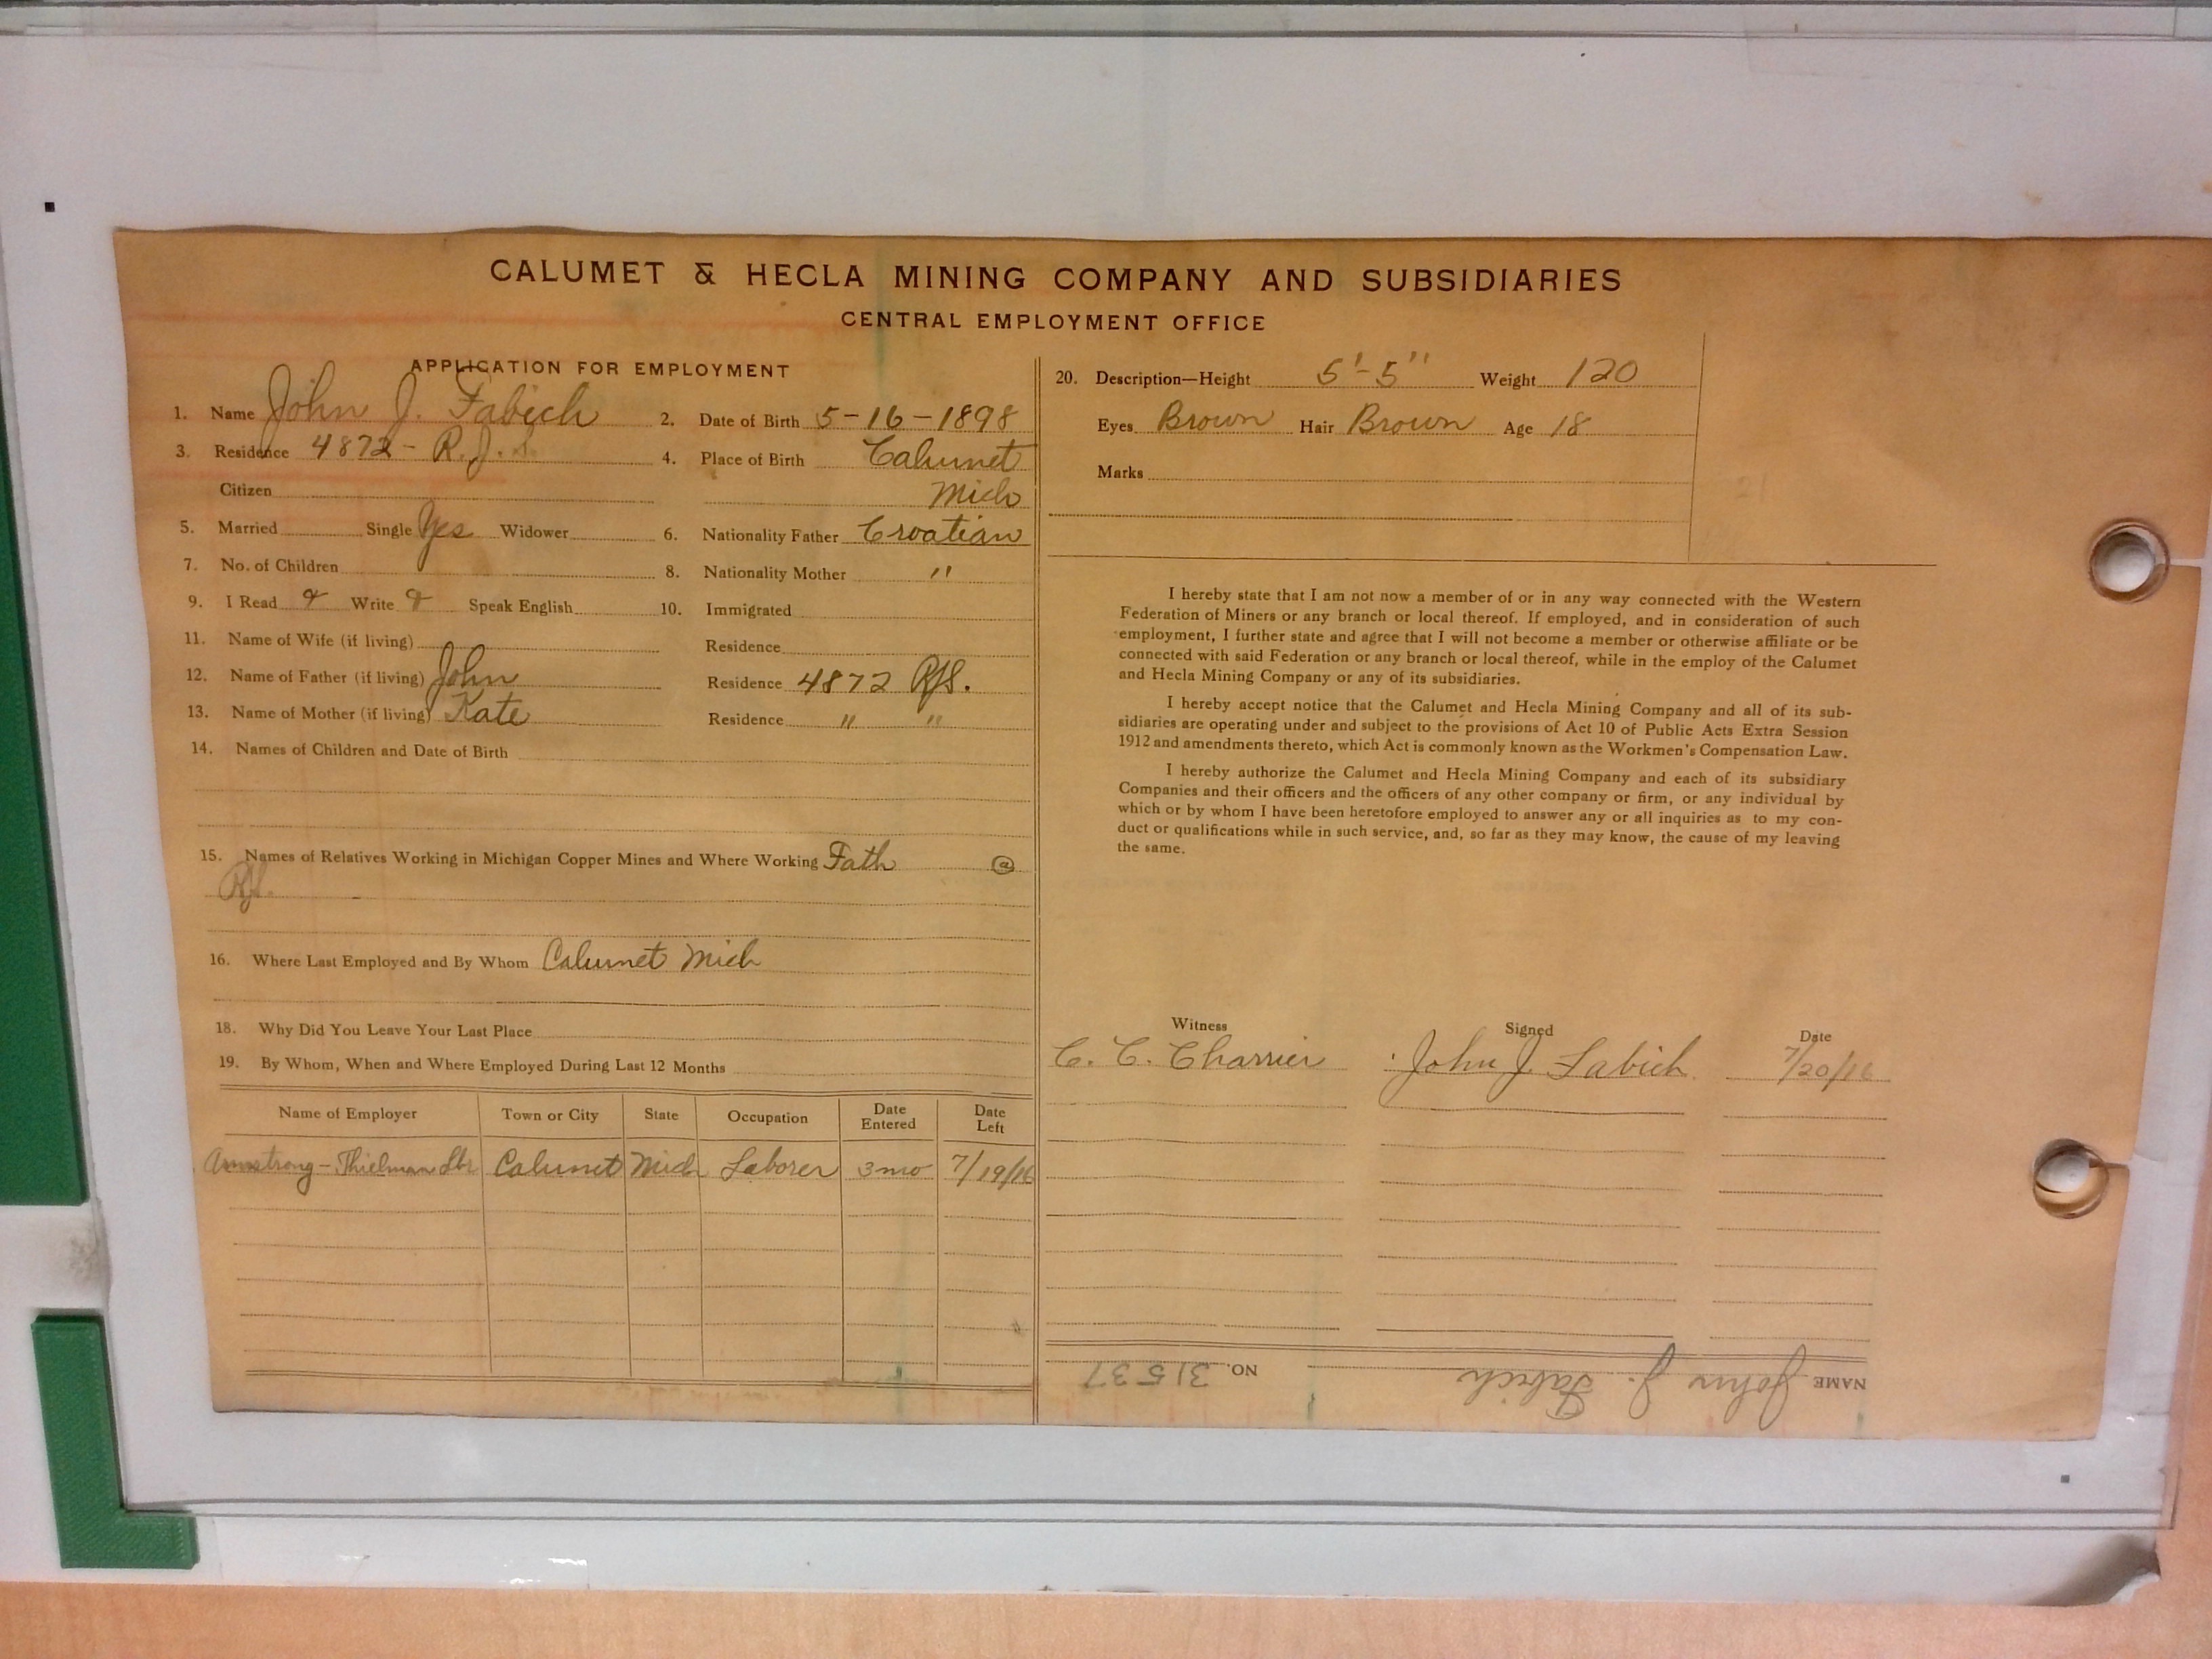 CALUMET & HECLA MINING COMPANY AND SUBSIDIARIES
CENTRAL EMPLOYMENT OFFICE
APPLICATION FOR EMPLOYMENT
1. Name John J. Fabich 2. Date of Birth 5-16-1898
3. Residence 4872 - R.J. 4. Place of Birth Calumet
Citizen Mich
5. Married Single Yes Widower 6. Nationality Father Croatian
7. No. of Children 8. Nationality Mother "
9. I Read Write Speak English 10. Immigrated
11. Name of Wife (if living) Residence
12. Name of Father (if living) John Residence 4872
13. Name of Mother (if living) Kate Residence " "
14. Names of Children and Date of Birth
15. Names of Relatives Working in Michigan Copper Mines and Where Working Fath @
16. Where Last Employed and By Whom Calumet Mich
18. Why Did You Leave Your Last Place
19. By Whom, When and Where Employed During Last 12 Months
Name of Employer Town or City State Occupation Date Entered Date Left
Armstrong-Thielman Lbr Calumet Mich Laborer 3 mo 7/19/16
20. Description—Height 5'-5" Weight 120
Eyes Brown Hair Brown Age 18
Marks
I hereby state that I am not now a member of or in any way connected with the Western
Federation of Miners or any branch or local thereof. If employed, and in consideration of such
employment, I further state and agree that I will not become a member or otherwise affiliate or be
connected with said Federation or any branch or local thereof, while in the employ of the Calumet
and Hecla Mining Company or any of its subsidiaries.
I hereby accept notice that the Calumet and Hecla Mining Company and all of its sub-
sidiaries are operating under and subject to the provisions of Act 10 of Public Acts Extra Session
1912 and amendments thereto, which Act is commonly known as the Workmen's Compensation Law.
I hereby authorize the Calumet and Hecla Mining Company and each of its subsidiary
Companies and their officers and the officers of any other company or firm, or any individual by
which or by whom I have been heretofore employed to answer any or all inquiries as to my con-
duct or qualifications while in such service, and, so far as they may know, the cause of my leaving
the same.
Witness Signed Date
C. C. Charrier John J. Fabich 7/20/16
NAME John J. Fabich NO. 31537